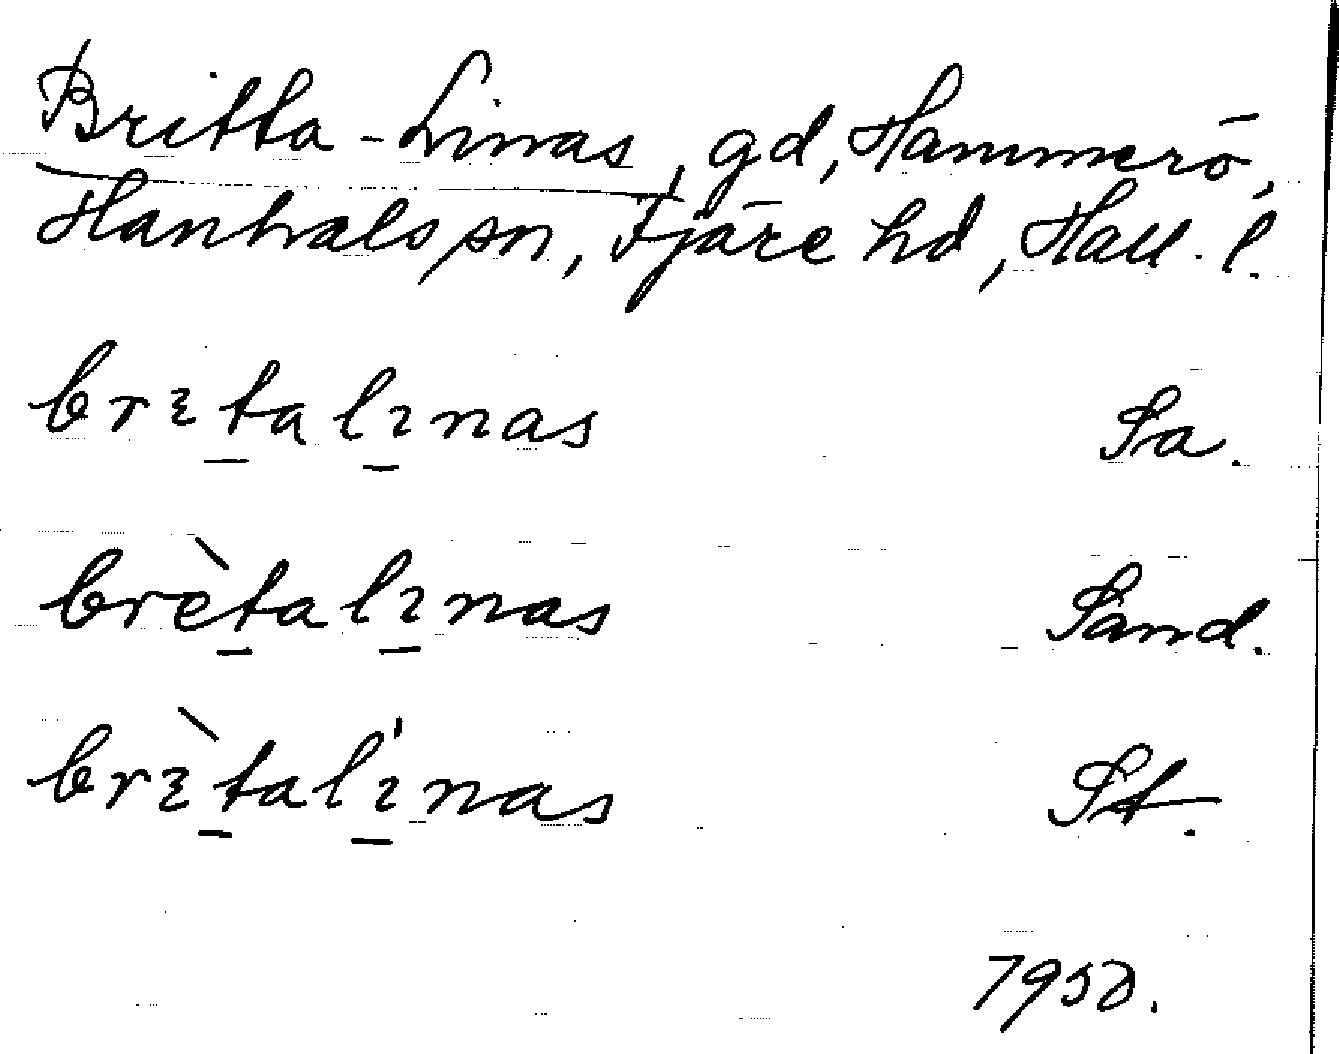 Britta-Linas, gd, Hammerö,
Hanhals sn, Fjäre hd, Hall. l.
brɛtalɩnas Sa.
brètalɩnas Sand.
brɛ̀talɩnas St.
1950.